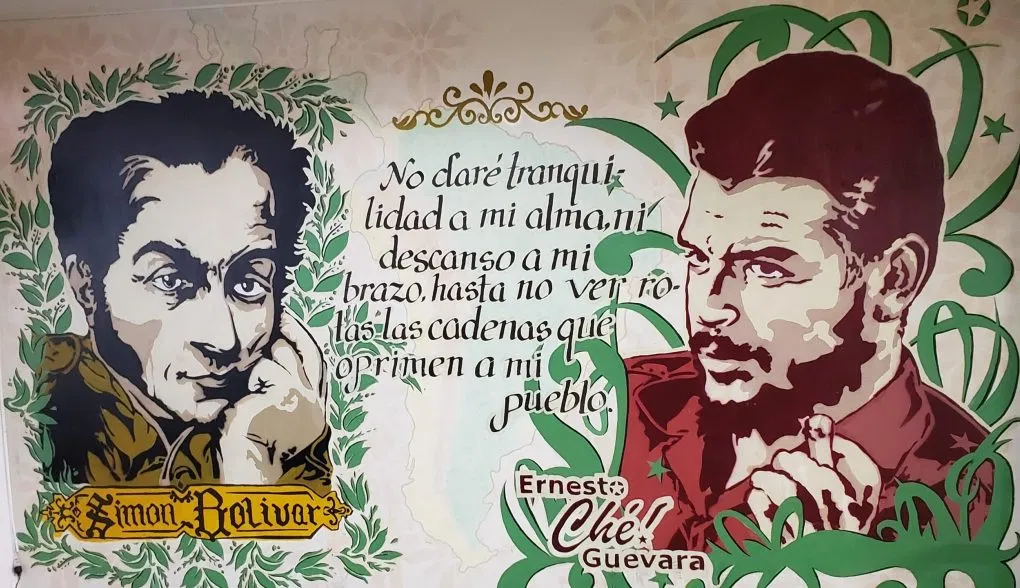 No daré tranqui-
lidad a mi alma, ni
descanso a mi
brazo, hasta no ver ro-
tas las cadenas que
oprimen a mi
pueblo.
Simon Bolivar
Ernesto
Ché!
Guevara